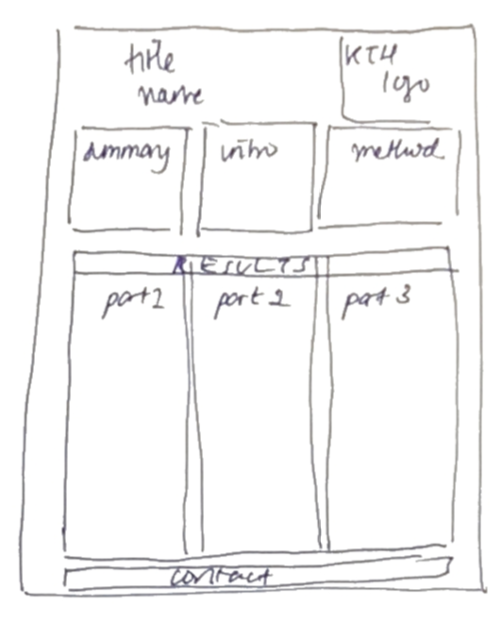 title
name
KTH
logo
summary
intro
method
RESULTS
part 1
part 2
part 3
contact